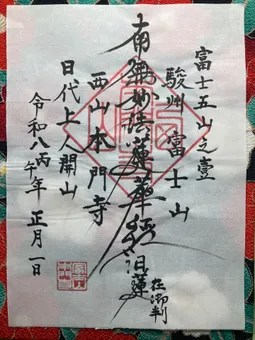 富士五山之壹
駿州 富士山
南無妙法蓮華經 日蓮 在御判
西山本門寺
日代上人開山
令和八丙午年 正月一日